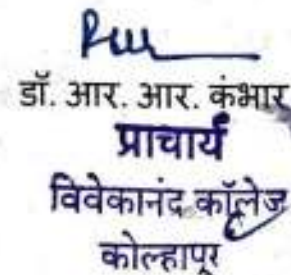 डॉ. आर. आर. कंभार
प्राचार्य
विवेकानंद कॉलेज
कोल्हापूर